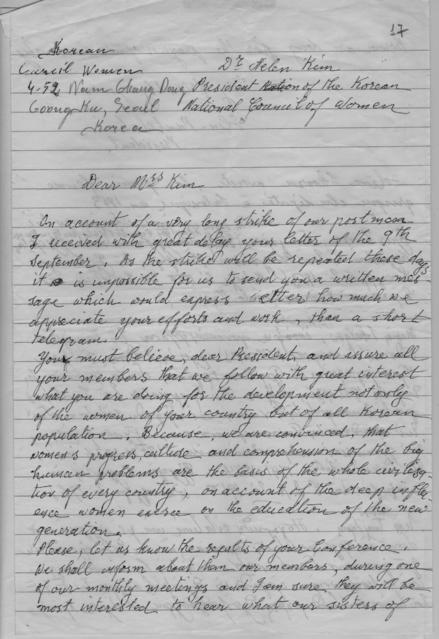 17
Korean
Council Women
4-52 Nam Chang Dong
Choong Ku, Seoul
Korea
Dr Helen Kim
President of the Korean
National Council of Women
Dear Mrs Kim
On account of a very long strike of our postmen
I received with great delay your letter of the 9th
September. As the strike will be repeated these days
it is impossible for us to send you a written mes-
sage which would express etter how much we
appreciate your efforts and work, than a short
telegram.
You must believe, dear President, and assure all
your members that we follow with great interest
what you are doing for the development not only
of the women of your country but of all Korean
population. Because, we are convinced, that
women's progress, culture and comprehension of the big
human problems are the basis of the whole civiliza-
tion of every country, on account of the deep influ-
ence women exercise on the education of the new
generation.
Please, let us know the results of your Conference.
We shall inform about them our members, during one
of our monthly meetings and I am sure, they will be
most interested to hear what our sisters of